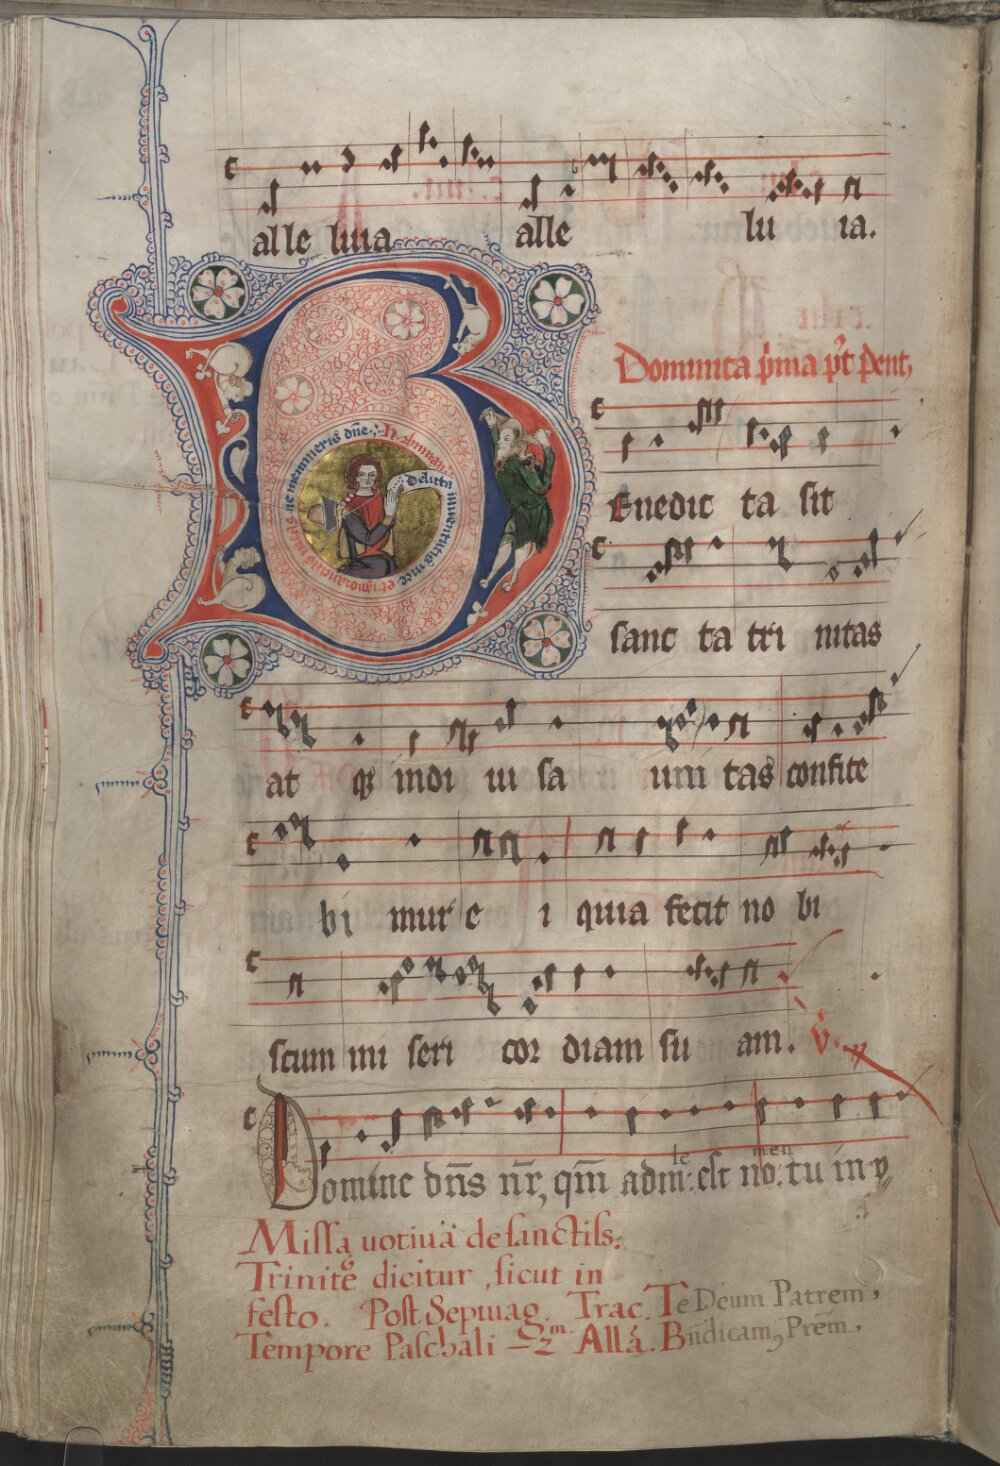 alle luia alle lu ia.
Dominica p̄ma p̄t Pent,
B Enedic ta sit
sanc ta tri nitas
at qȝ indi ui sa uni tas confite
bi mur e i quia fecit no bi
scum mi seri cor diam su am. V̄.
delicta iuuentutis mee et ignorancias meas ne memineris dn̄e.
Domine dn̄s nr̄, qm̄ adm: est no: tu in
te men
Missa uotiua de sanctiſs.
Trinitē dicitur sicut in
festo. Post Septuag. Trac. Te Deum Patrem,
Tempore Paschali – 2.m Allá. Bn̄dicam, Prēm.